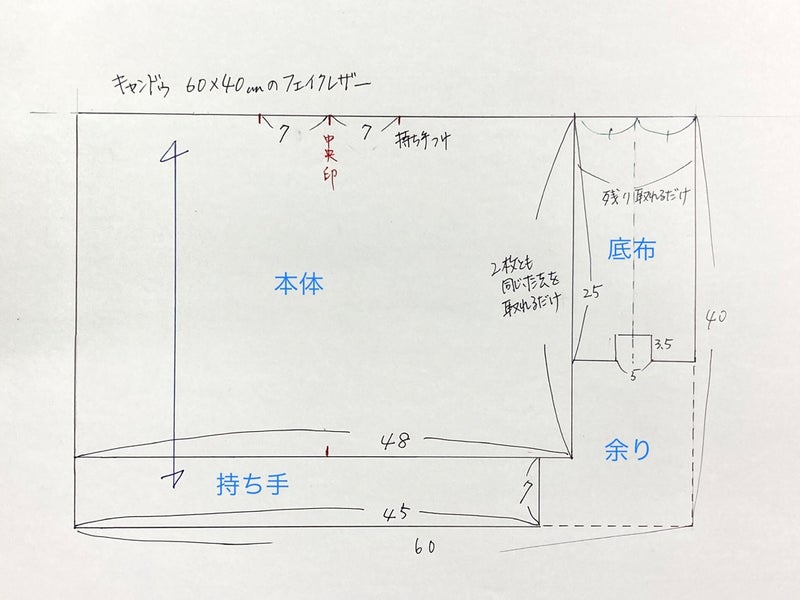 キャンドゥ 60×40cmのフェイクレザー
7
7
持ち手つけ
中央印
残り取れるだけ
底布
本体
2枚とも
同じ寸法を
取れるだけ
25
40
3.5
5
48
余り
持ち手
7
45
60